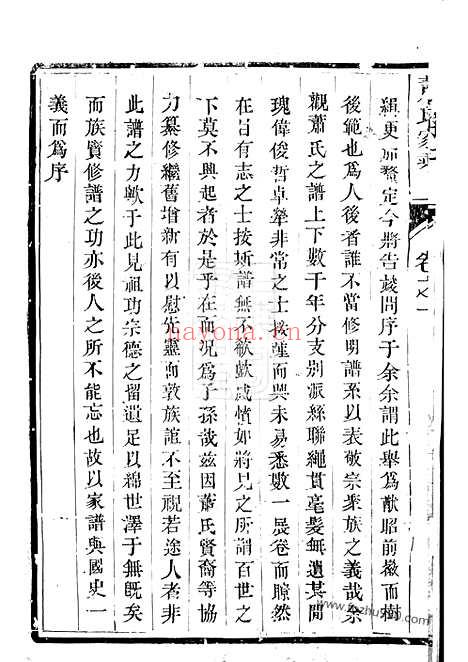 緝更加釐定今將告竣問序于余余謂此舉爲猷昭前徽而樹
後範也爲人後者誰不當修明譜系以表敬宗聚族之義哉余
觀蕭氏之譜上下數千年分支別派絲聯繩貫毫髮無遺其間
瑰偉俊哲卓犖非常之士接踵而興未易悉數一展卷而瞭然
在目有志之士按斯譜無不欷歔感憤如將見之所謂百世之
下莫不興起者於是乎在而況爲子孫哉茲因蕭氏賢裔等協
力纂修繼舊增新有以慰先靈而敦族誼不至視若途人者非
此譜之力歟于此見祖功宗德之留遺足以綿世澤于無既矣
而族賢修譜之功亦後人之所不能忘也故以家譜與國史一
義而爲序
卷之一
hayona.cn
www.fozhu919.com